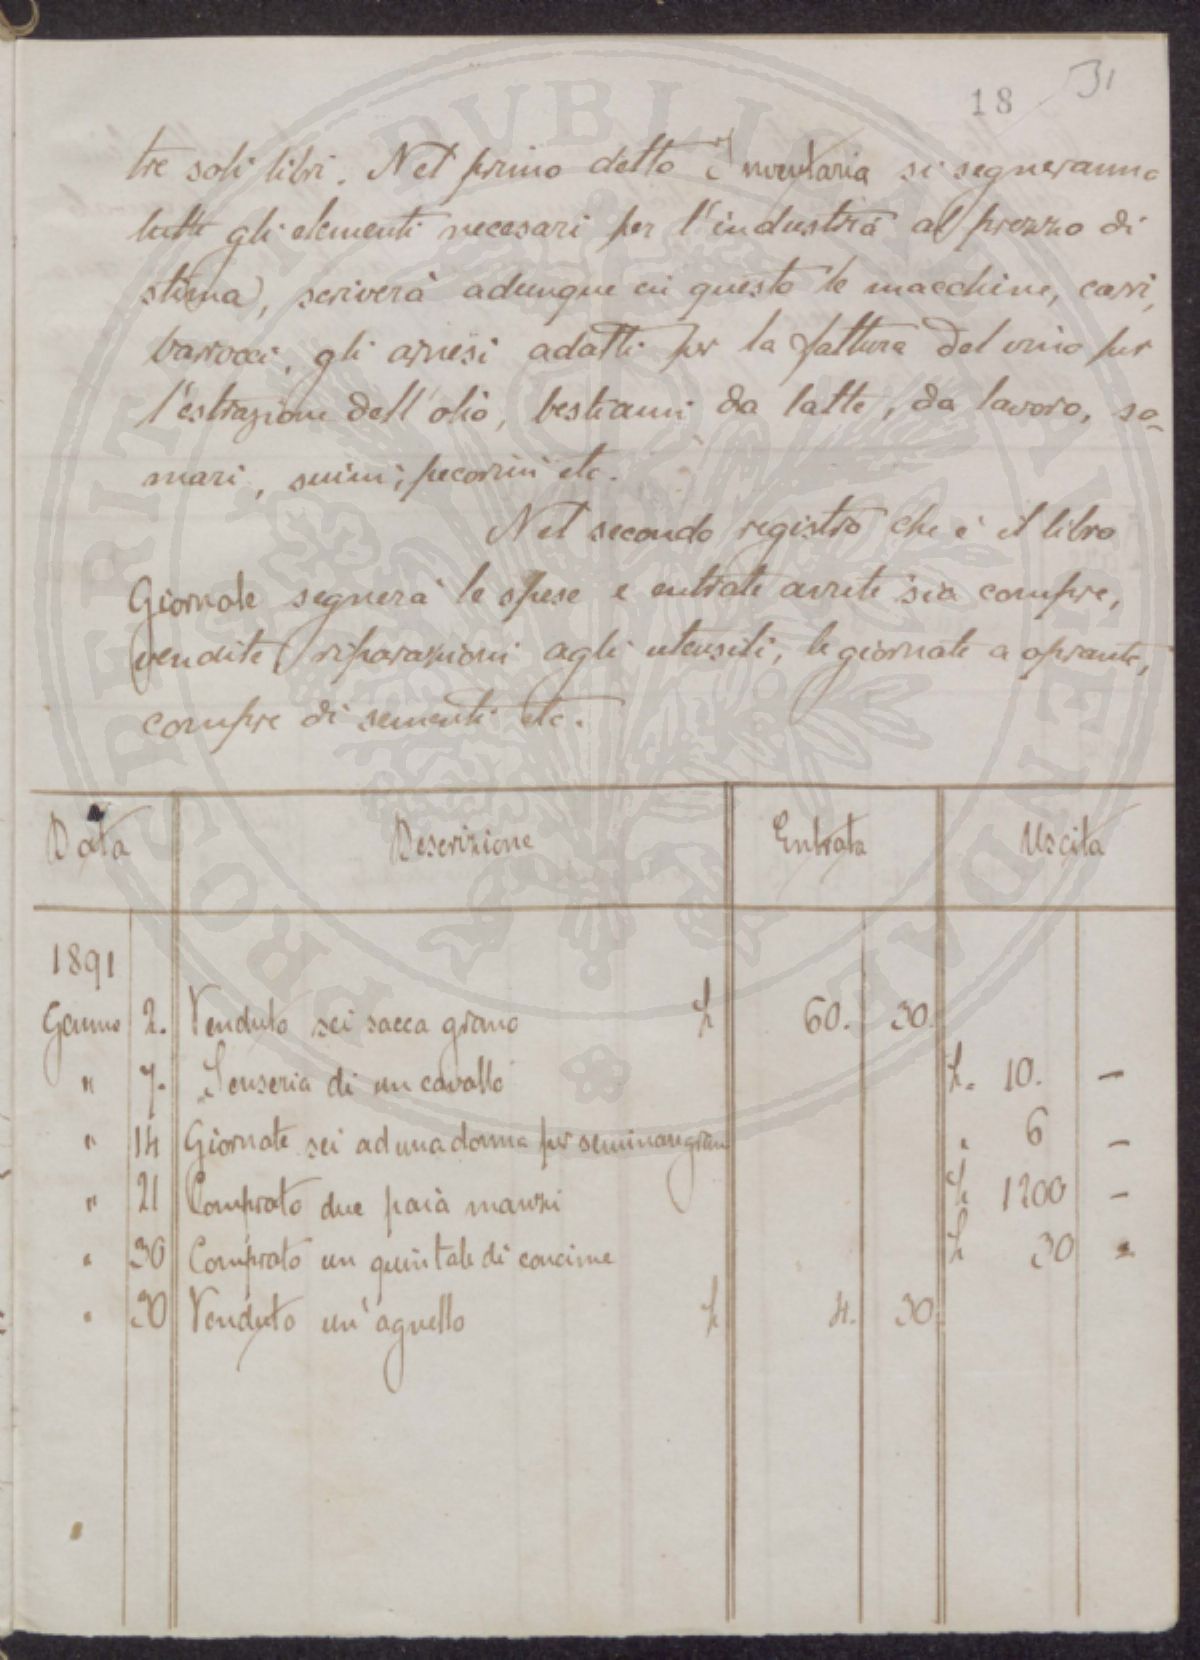 18 31
tre soli libri. Nel primo detto Inventaria si segneranno
tutti gli elementi necesari per l'industria al prezzo di
stima, scriverà adunque in questo le macchine, carri,
barrocci, gli arnesi adatti per la fattura del vino per
l'estrazione dell'olio, bestiami da latte, da lavoro, so-
mari, suini, pecorini etc.
Nel secondo registro che è il libro
Giornale segnerà le spese e entrate avute sia compre,
vendite riparazioni agli utensili, le giornate a oprante,
compre di sementi etc.
Data Descrizione Entrata Uscita
1891
Gennaio 2. Venduto sei sacca grano L 60. 30.
" 7. Senseria di un cavallo L. 10. —
" 14 Giornate sei ad una donna per seminare grano " 6 —
" 21 Comprato due paia manzi L 1200 —
" 30 Comprato un quintale di concime L 30 -
" 30 Venduto un'agnello L 4. 30.
PUBLICA DILIGENTIAE PROSPERITATI